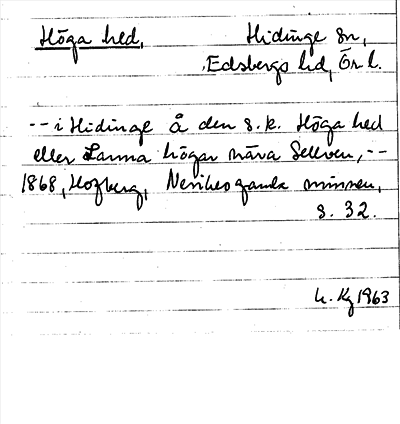 Höga hed, Hidinge sn,
Edsbergs hd, Ör. l.
-- i Hidinge å den s.k. Höga hed
eller Lanna högar nära Sellven, --
1868, Hofberg, Nerikes gamla minnen,
s. 32.
h. Kg 1963